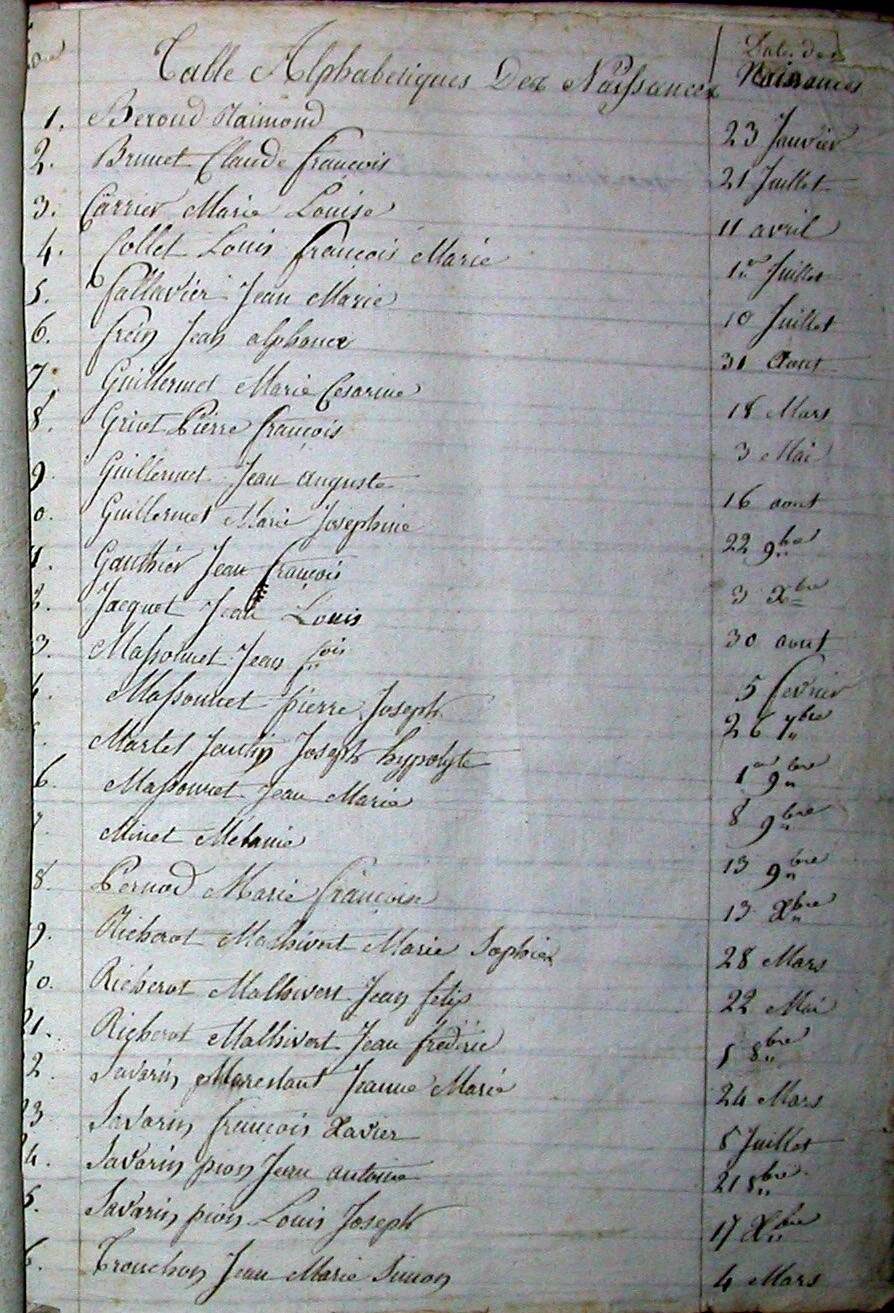 Table Alphabetiques Des Naissances Date des Naissances
1. Beroud Raimond 23 Janvier
2. Brunet Claude francois 21 Juillet
3. Carrier Marie Louise 11 avril
4. Collet Louis francois Marie 1er Juillet
5. fallavier Jean Marie 10 Juillet
6. frein Jean alphonce 31 Aout
7. Guillermet Marie Cesarine 18 Mars
8. Grivet Pierre francois 3 Mai
9. Guillermet Jean auguste 16 aout
0. Guillermet Marie Josephine 22 9bre
1. Gauthier Jean francois 3 Xbre
2. Jacquet Jean Louis 30 aout
3. Massonnet Jean fois 5 fevrier
4. Massonnet pierre Joseph 26 7bre
Martel Joseph hypolyte 1er 9bre
6. Massonnet Jean Marie 8 9bre
7. Minet Melanie 13 9bre
8. Pernod Marie francoise 13 Xbre
9. Richerot Mathivert Marie Sophie 28 Mars
0. Richerot Mathivert Jean felix 22 Mai
21. Richerot Mathivert Jean frederic 5 8bre
2. Savarin Marestant Jeanne Marie 24 Mars
23 Savarin francois Xavier 5 Juillet
4. Savarin pion Jean antoine 21 8bre
5. Savarin pion Louis Joseph 17 Xbre
6. Trouchon Jean Marie Simon 4 Mars